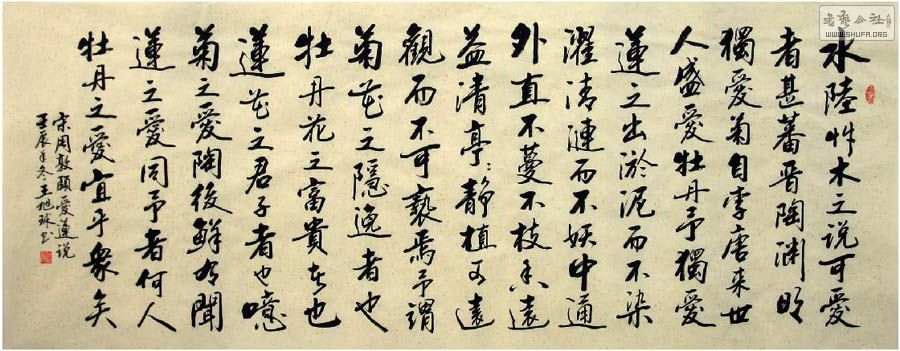 水陸艸木之说可愛
者甚蕃晋陶渊明
獨愛菊自李唐来世
人盛愛牡丹予獨愛
蓮之出淤泥而不染
濯清漣而不妖中通
外直不蔓不枝香遠
益清亭:静植可遠
觀而不可褻焉予謂
菊花之隱逸者也
牡丹花之富貴者也
蓮花之君子者也噫
菊之愛陶後鮮有聞
蓮之愛同予者何人
牡丹之愛宜乎衆矣
宋周敦頤愛蓮说
壬辰年冬王旭球书
书艺公社
WWW.SHUFA.ORG